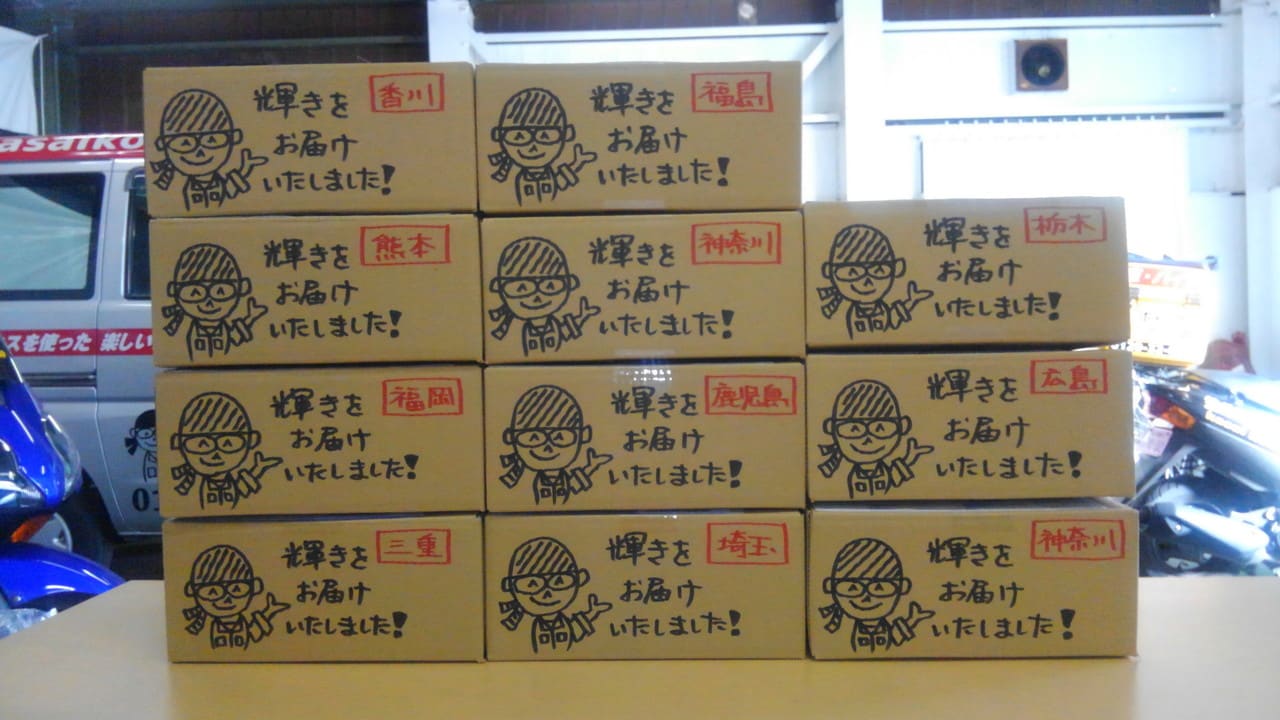 輝きを 香川
お届け
いたしました!
輝きを 福島
お届け
いたしました!
輝きを 熊本
お届け
いたしました!
輝きを 神奈川
お届け
いたしました!
輝きを 栃木
お届け
いたしました!
輝きを 福岡
お届け
いたしました!
輝きを 鹿児島
お届け
いたしました!
輝きを 広島
お届け
いたしました!
輝きを 三重
お届け
いたしました!
輝きを 埼玉
お届け
いたしました!
輝きを 神奈川
お届け
いたしました!
asaiko
スを使った 楽しい